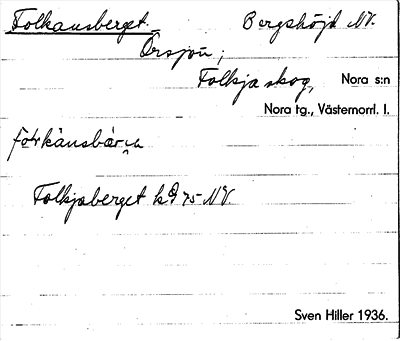 Folkansberget. Bergshöjd NV.
Örsjön;
Folkja skog, Nora s:n
Nora tg., Västernorrl. l.
Folkjaberget NV.
Sven Hiller 1936.